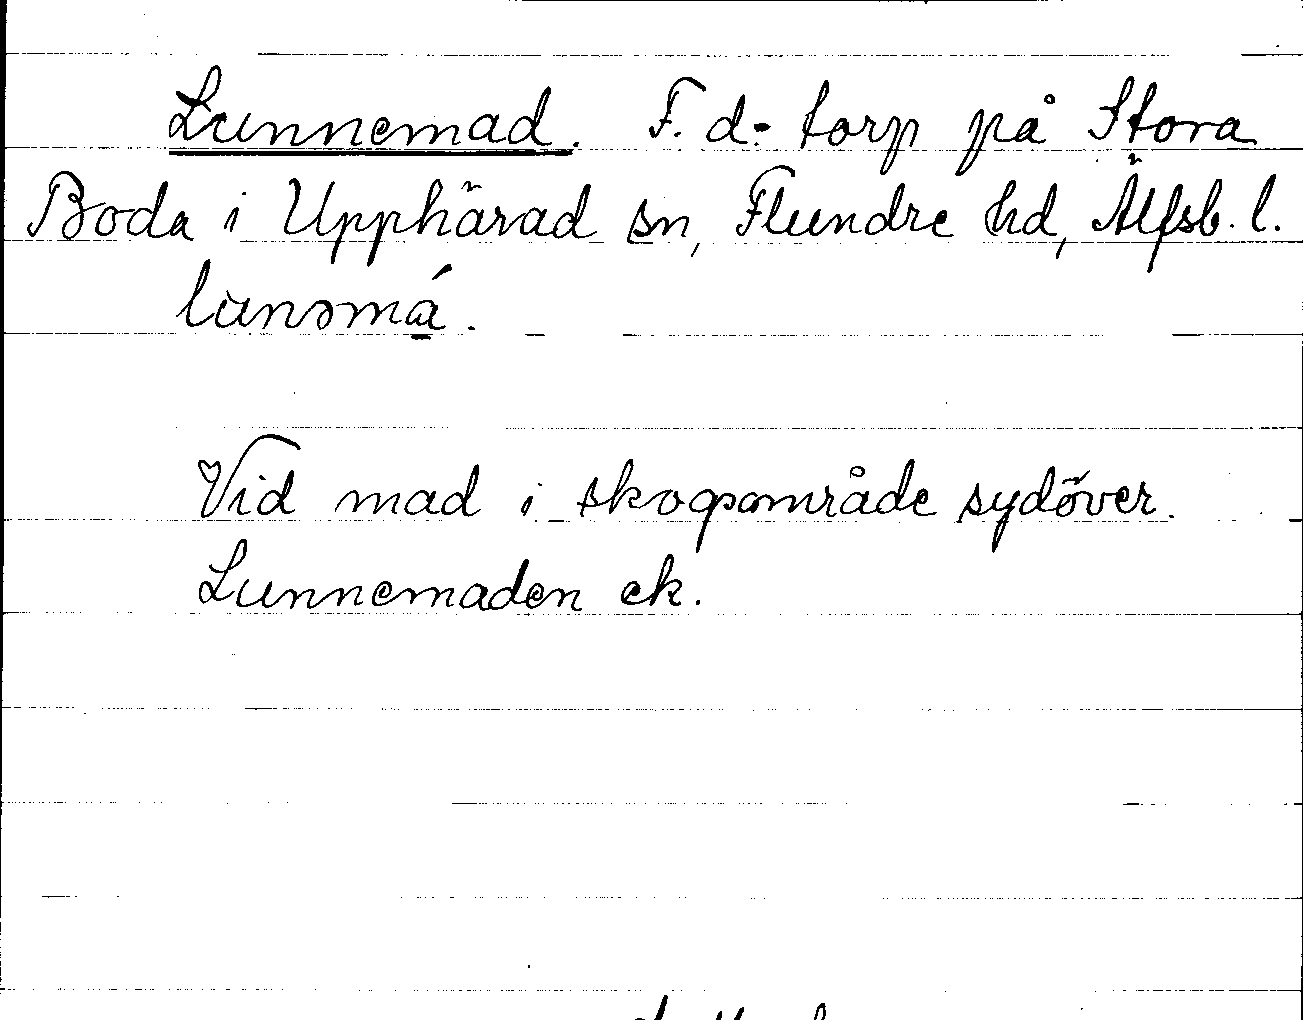 Lunnemad. F. d. torp på Stora
Boda i Upphärad sn, Flundre hd, Älfsb. l.
lùnəmá.
Vid mad i skogsområde sydöver.
Lunnemaden ek.